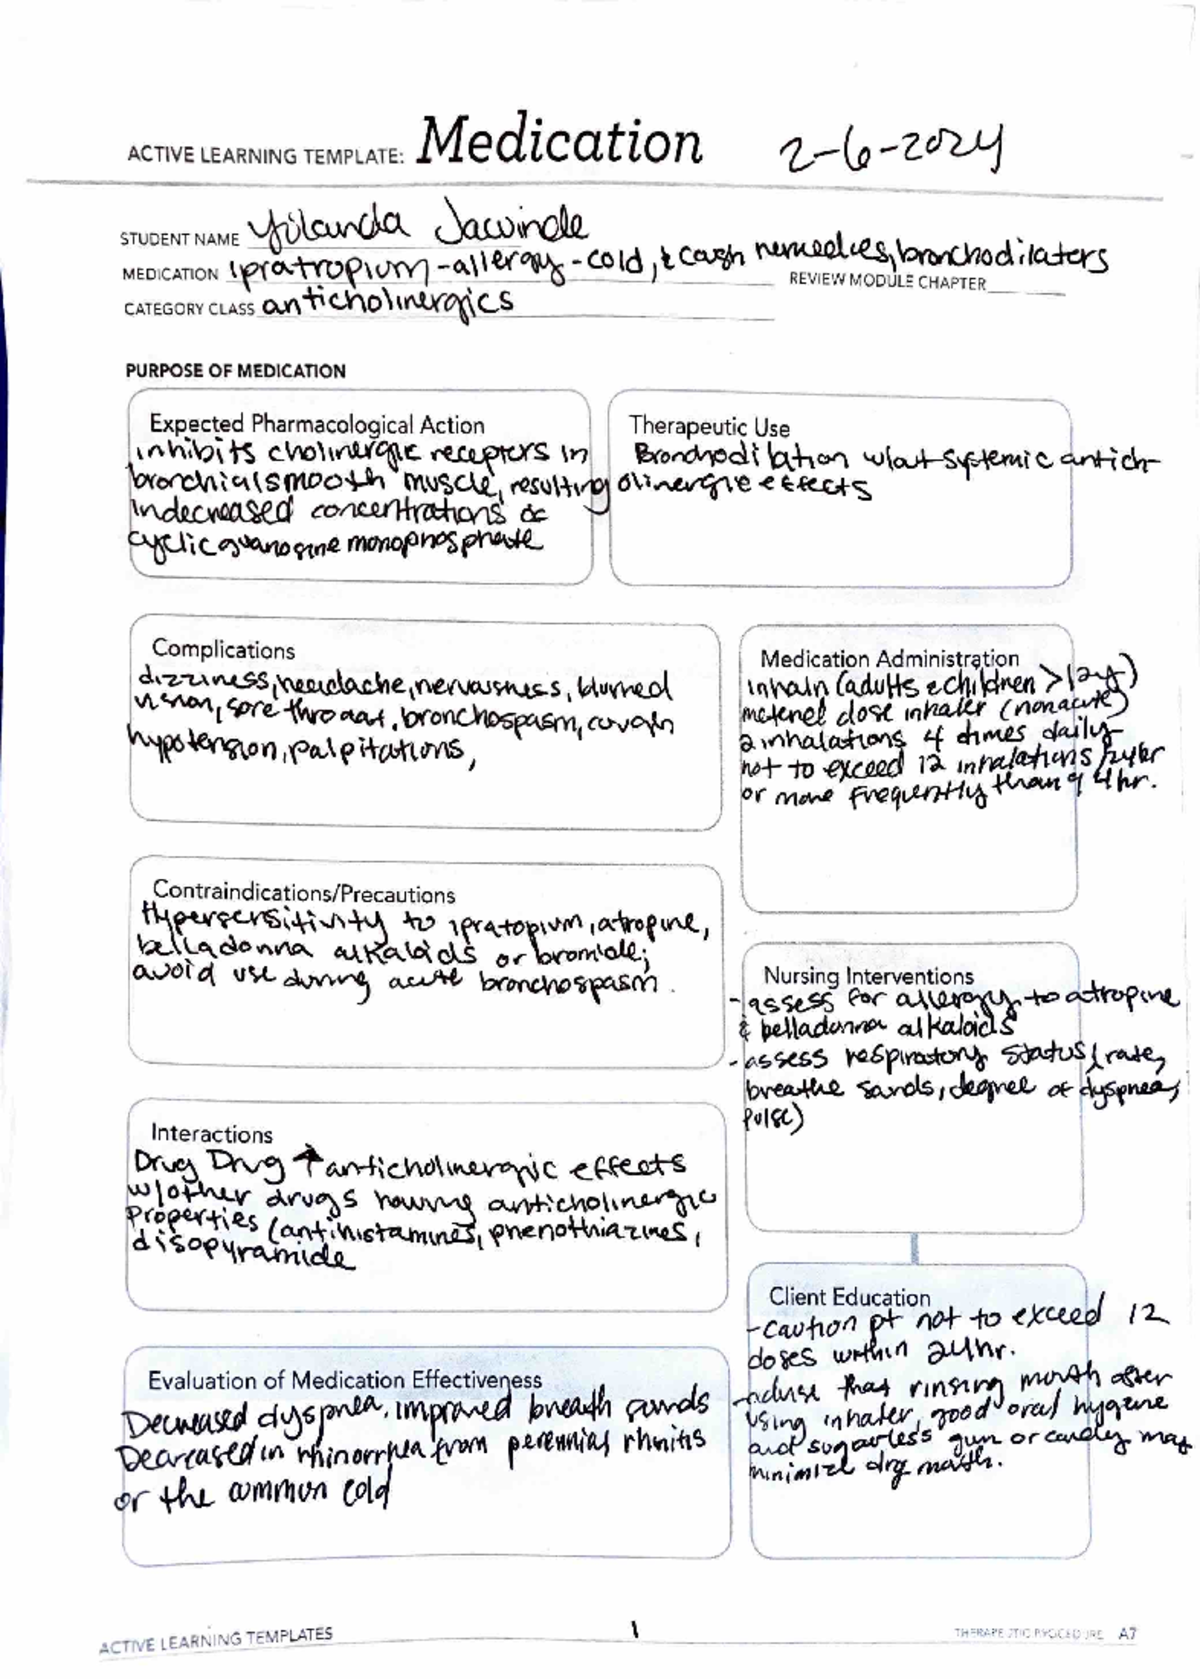 ACTIVE LEARNING TEMPLATE: Medication 2-6-2024
STUDENT NAME Yolanda
MEDICATION Ipratropium-allergy-cold, & remedies, bronchodilaters
REVIEW MODULE CHAPTER
CATEGORY CLASS anticholinergics
PURPOSE OF MEDICATION
Expected Pharmacological Action
inhibits cholinergic receptors in
bronchial smooth muscle, resulting
in decreased concentrations of
cyclic guanosine monophosphate
Therapeutic Use
Bronchodilation w/out systemic antich-
olinergic effects
Complications
dizziness, headache, nervousness, blurred
vision, sore throat, bronchospasm, cough
hypotension, palpitations,
Medication Administration
inhaln (adults & children >12y)
metered dose inhaler (nonacute)
2 inhalations 4 times daily
not to exceed 12 inhalations /24hr
or more frequently than q 4hr.
Contraindications/Precautions
Hypersensitivity to ipratopium, atropine,
belladonna alkaloids or bromide;
avoid use during acute bronchospasm.
Nursing Interventions
-assess for allergy to atropine
& belladonna alkaloids
-assess respiratory status (rate,
breathe sands, degree of dyspnea,
pulse)
Interactions
Drug Drug ↑ anticholinergic effects
w/other drugs having anticholinergic
properties (antihistamines, phenothiazines,
disopyramide
Client Education
-caution pt not to exceed 12
doses within 24hr.
-advise that rinsing mouth after
using inhaler, good oral hygiene
and sugarless gum or candy may
minimize dry mouth.
Evaluation of Medication Effectiveness
Decreased dyspnea, improved breath sounds
Decreased in rhinorrhea from perennial rhinitis
or the common cold
ACTIVE LEARNING TEMPLATES
1
THERAPEUTIC PROCEDURE A7